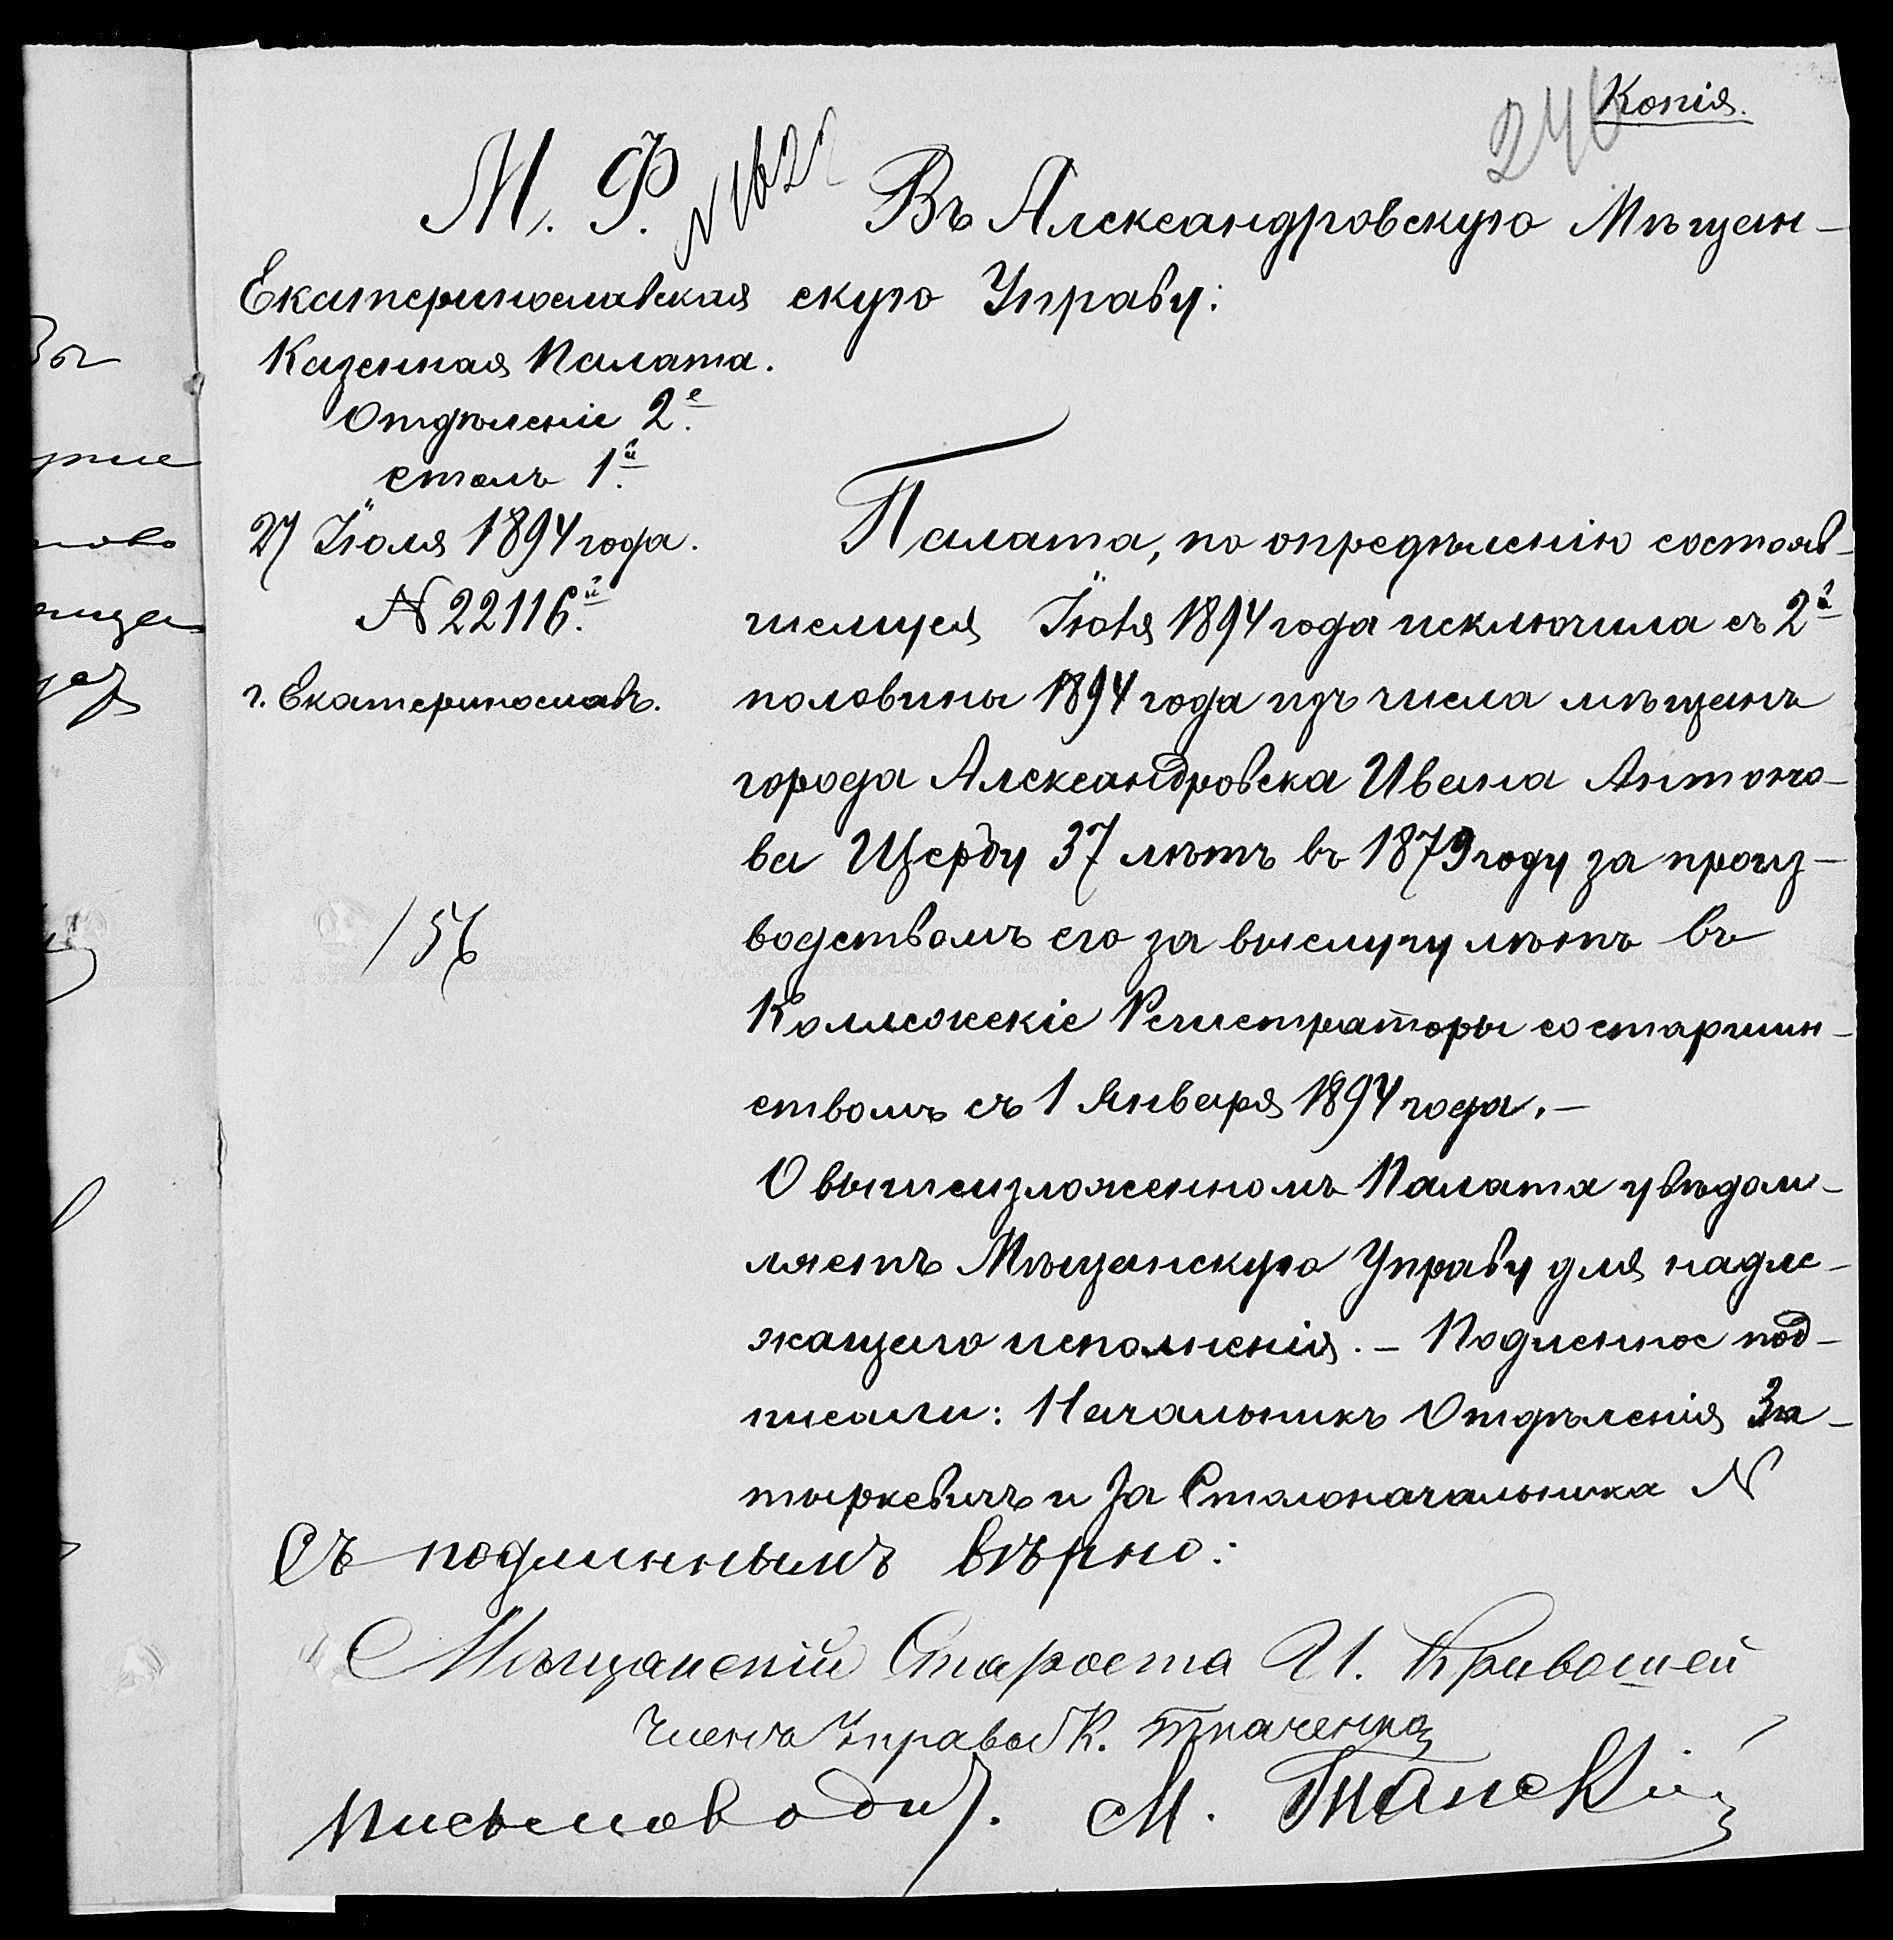 Копія.
246
М. Ф.
Екатеринославская
Казенная Палата.
Отдѣленіе 2е.
столъ 1й.
27 Іюля 1894 года.
N 22116й.
г. Екатеринославъ.
156
Въ Александровскую Мѣщан-
скую Управу:
Палата, по опредѣленію состояв-
шемуся Іюля 1894 года исключила съ 2й
половины 1894 года изъ числа мѣщанъ
города Александровска Ивана Антоно-
ва Щербу 37 лѣтъ въ 1879 году за произ-
водствомъ его за выслугу лѣтъ въ
Коллежскіе Регистраторы со старшин-
ствомъ съ 1 Января 1894 года.-
О вышеизложенномъ Палата увѣдом-
ляетъ Мѣщанскую Управу для надле-
жащаго исполненія. - Подленное под-
писали: Начальникъ Отдѣленія За-
тыркевичъ и За Столоначальника N
Съ подлиннымъ вѣрно:
Мѣщанскій Староста И. Кривошей
Членъ Управы К. Ткаченко
Письмовод. М. Танскій